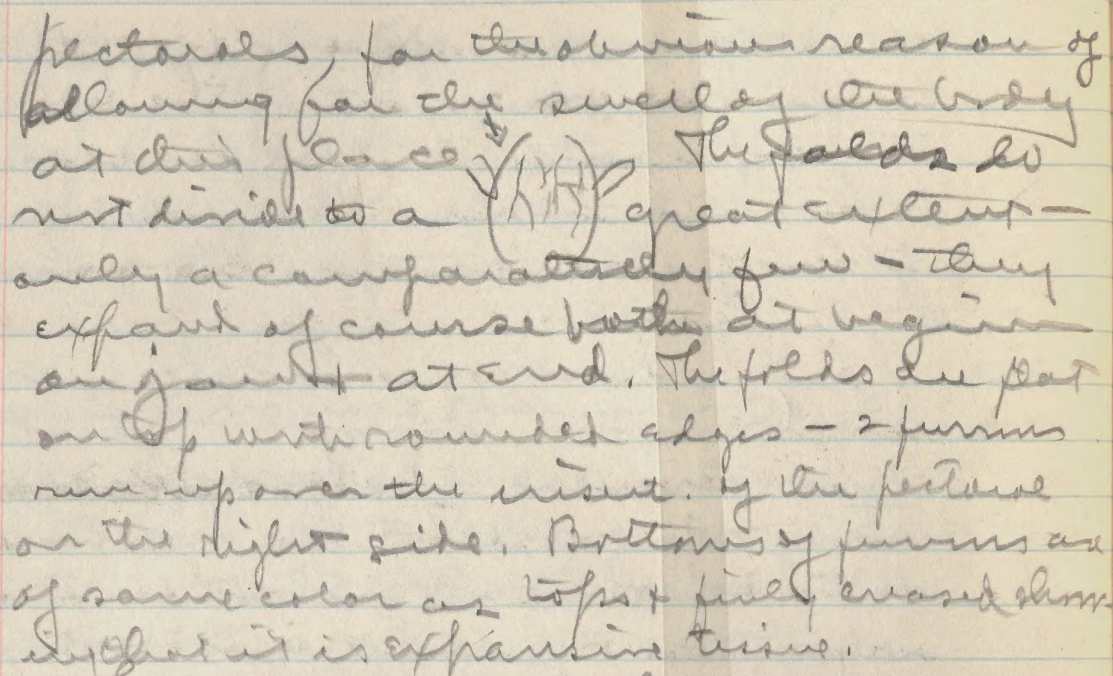 pectorals, for the obvious reason of
allowing for the swell of the body
at this place. The folds do
not divide to a great extent —
only a comparatively few — they
expand of course both at begin
on jaw & at end. The folds are flat
on top with rounded edges — 2 furrows
run up over the insert. of the pectoral
on the right side. Bottoms of furrows are
of same color as tops & finely creased show-
ing that it is expansive tissue.